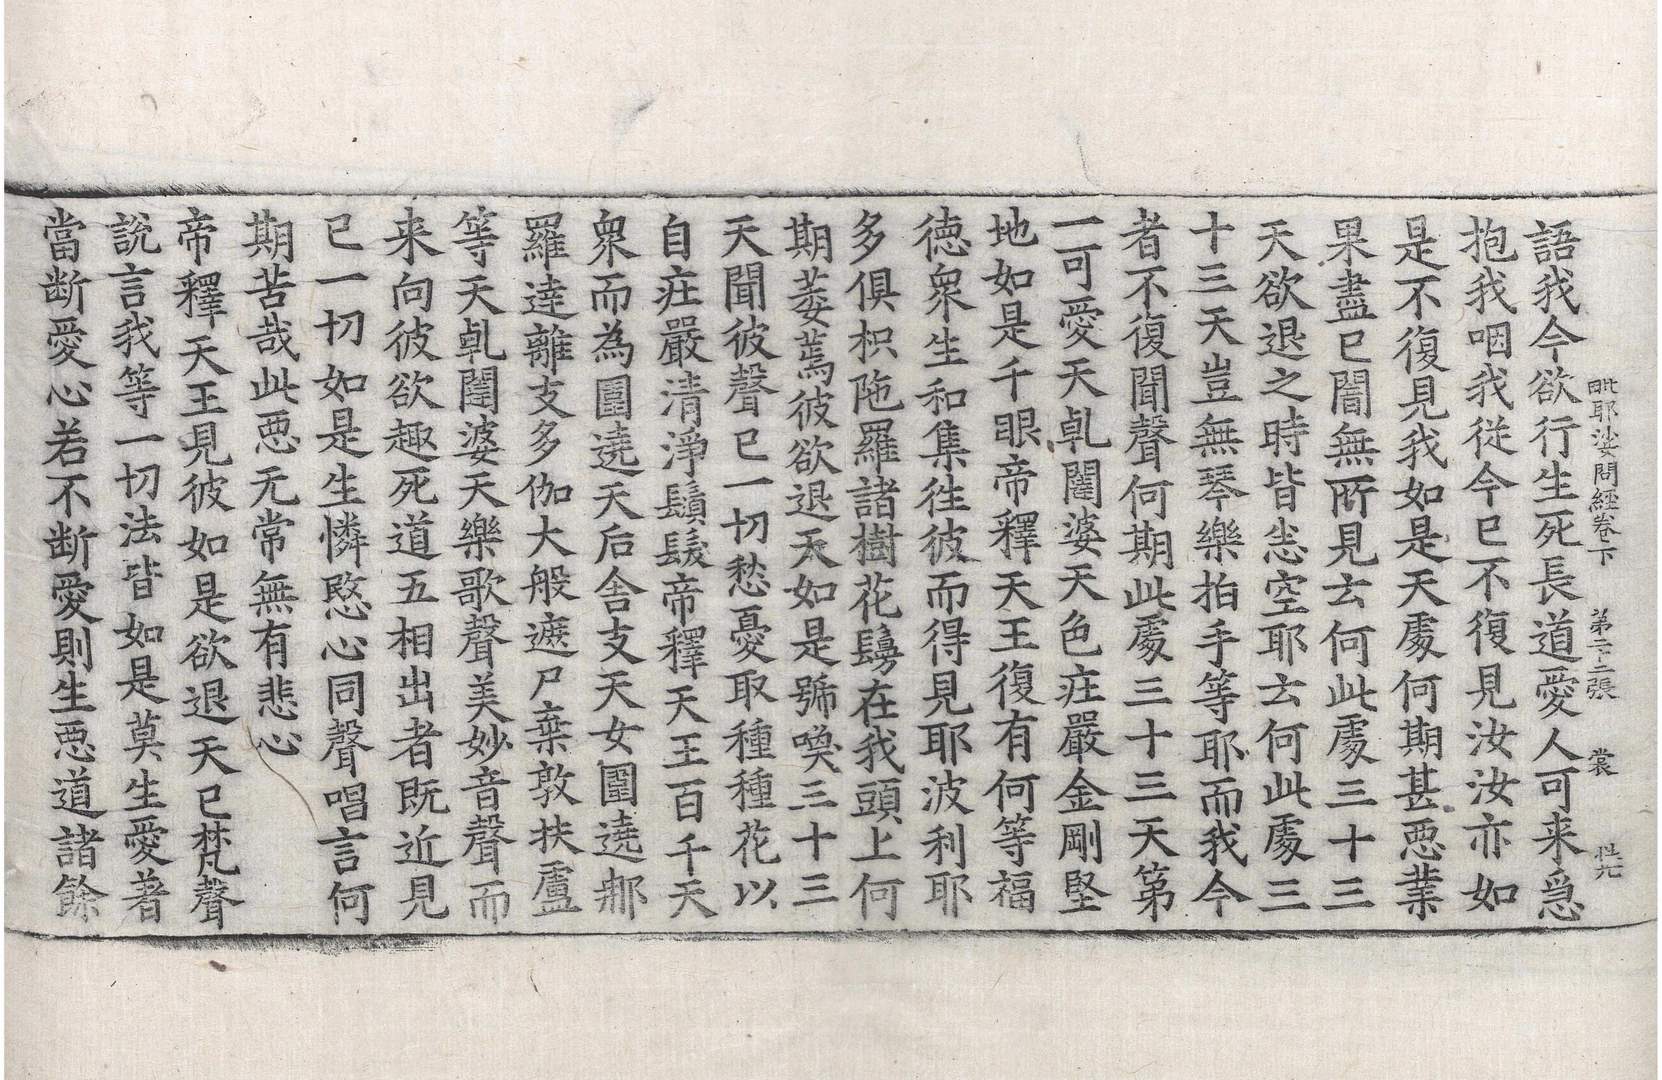 毗耶娑問經卷下 第二十二張 裳
語我今欲行生死長道愛人可来急
抱我咽我從今已不復見汝汝亦如
是不復見我如是天處何期甚惡業
果盡已闇無所見云何此處三十三
天欲退之時皆悉空耶云何此處三
十三天豈無琴樂拍手等耶而我今
者不復聞聲何期此處三十三天第
一可愛天乹闥婆天色莊嚴金剛堅
地如是千眼帝釋天王復有何等福
德衆生和集徃彼而得見耶波利耶
多俱枳陁羅諸樹花鬘在我頭上何
期萎蔫彼欲退天如是號喚三十三
天聞彼聲已一切愁憂取種種花以
自莊嚴清淨鬚髮帝釋天王百千天
衆而為圍遶天后舍支天女圍遶郍
羅達離支多伽大般遮尸棄敦扶盧
等天乹闥婆天樂歌聲美妙音聲而
来向彼欲趣死道五相出者既近見
已一切如是生憐愍心同聲唱言何
期苦哉此惡无常無有悲心
帝釋天王見彼如是欲退天已梵聲
說言我等一切法皆如是莫生愛著
當断愛心若不断愛則生惡道諸餘